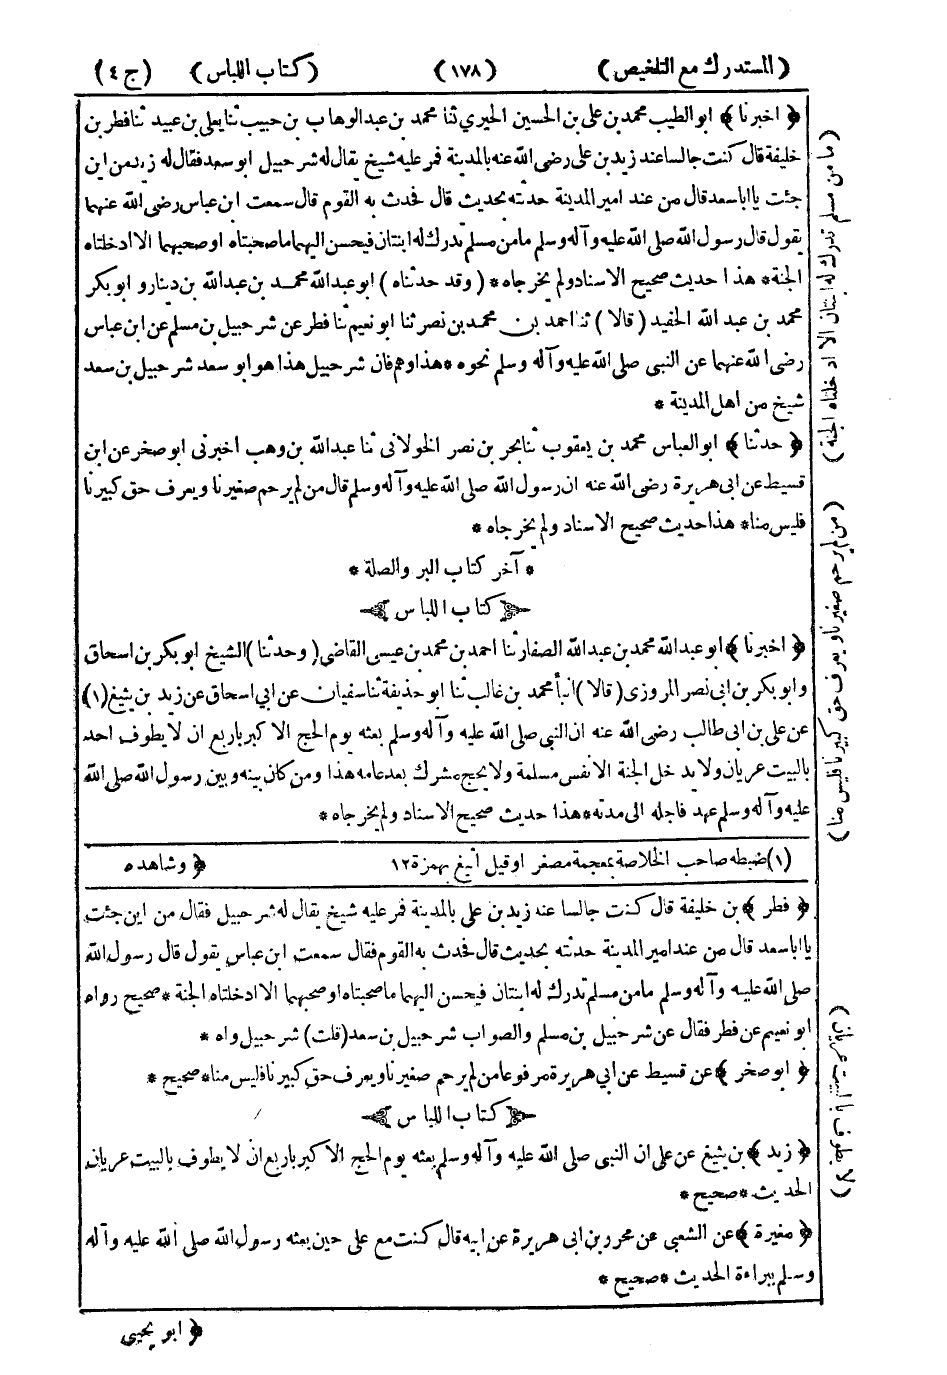 (المستدرك مع التلخيص) (١٧٨) (كتاب اللباس) (ج ٤)
﴿ اخبرنا ﴾ ابو الطيب محمد بن على بن الحسين الحيرى ثنا محمد بن عبد الوهاب بن حبيب ثنا يعلى بن عبيد ثنا فطر بن
خليفة قال كنت جالسا عند زيد بن على رضى الله عنه بالمدينة فمر عليه شيخ يقال له شرحبيل ابو سعد فقال له زيد من اين
جئت يا ابا سعد قال من عند امير المدينة حدثته بحديث قال فحدث به القوم قال سمعت ابن عباس رضى الله عنهما
يقول قال رسول الله صلى الله عليه وآله وسلم ما من مسلم تدرك له ابنتان فيحسن اليهما ما صحبتاه او صحبهما الا ادخلتاه
الجنة * هذا حديث صحيح الاسناد ولم يخرجاه * (وقد حدثناه) ابو عبد الله محمد بن عبد الله بن دينار و ابو بكر
محمد بن عبد الله الحفيد (قالا) ثنا احمد بن محمد بن نصر ثنا ابو نعيم ثنا فطر عن شرحبيل بن مسلم عن ابن عباس
رضى الله عنهما عن النبى صلى الله عليه وآله وسلم نحوه * هذا وهم فان شرحبيل هذا هو ابو سعد شرحبيل بن سعد
شيخ من اهل المدينة *
﴿ حدثنا ﴾ ابو العباس محمد بن يعقوب ثنا بحر بن نصر الخولانى ثنا عبد الله بن وهب اخبرنى ابو صخر عن ابن
قسيط عن ابى هريرة رضى الله عنه ان رسول الله صلى الله عليه وآله وسلم قال من لم يرحم صغيرنا ويعرف حق كبيرنا
فليس منا * هذا حديث صحيح الاسناد ولم يخرجاه *
* آخر كتاب البر والصلة *
كتاب اللباس
﴿ اخبرنا ﴾ ابو عبد الله محمد بن عبد الله الصفار ثنا احمد بن محمد بن عيسى القاضى (وحدثنا) الشيخ ابو بكر بن اسحاق
و ابو بكر بن ابى نصر المروزى (قالا) انبأ محمد بن غالب ثنا ابو حذيفة ثنا سفيان عن ابى اسحاق عن زيد بن يثيغ (١)
عن على بن ابى طالب رضى الله عنه ان النبى صلى الله عليه وآله وسلم بعثه يوم الحج الاكبر باربع ان لا يطوف احد
بالبيت عريان ولا يدخل الجنة الا نفس مسلمة ولا يحج مشرك بعد عامه هذا ومن كان بينه وبين رسول الله صلى الله
عليه وآله وسلم عهد فاجله الى مدته * هذا حديث صحيح الاسناد ولم يخرجاه *
(١) ضبطه صاحب الخلاصة بمعجمة مصغر او قيل أثيغ بهمزة ١٢ ﴿ وشاهده
﴿ فطر ﴾ بن خليفة قال كنت جالسا عند زيد بن على بالمدينة فمر عليه شيخ يقال له شرحبيل فقال من اين جئت
يا ابا سعد قال من عند امير المدينة حدثته بحديث قال فحدث به القوم فقال سمعت ابن عباس يقول قال رسول الله
صلى الله عليه وآله وسلم ما من مسلم تدرك له ابنتان فيحسن اليهما ما صحبتاه او صحبهما الا ادخلتاه الجنة * صحيح رواه
ابو نعيم عن فطر فقال عن شرحبيل بن مسلم والصواب شرحبيل بن سعد (قلت) شرحبيل واه *
﴿ ابو صخر ﴾ عن قسيط عن ابى هريرة مرفوعا من لم يرحم صغيرنا ويعرف حق كبيرنا فليس منا * صحيح *
كتاب اللباس
﴿ زيد ﴾ بن يثيغ عن على ان النبى صلى الله عليه وآله وسلم بعثه يوم الحج الاكبر باربع ان لا يطوف بالبيت عريان
الحديث * صحيح *
﴿ مغيرة ﴾ عن الشعبى عن محرر بن ابى هريرة عن ابيه قال كنت مع على حين بعثه رسول الله صلى الله عليه وآله
وسلم ببراءة الحديث * صحيح *
﴿ ابو يحيى
(ما من مسلم تدرك له ابنتان الا ادخلتاه الجنة)
(من لم يرحم صغيرنا ويعرف حق كبيرنا فليس منا)
(لا يطوف بالبيت عريان)